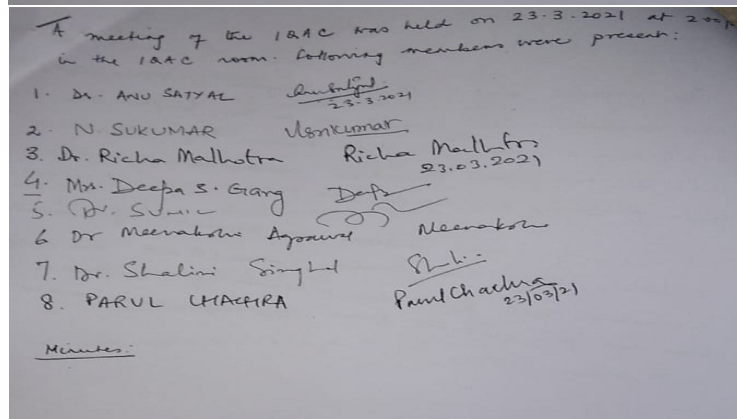 A meeting of the IQAC was held on 23.3.2021 at 2:00
in the IQAC room. Following members were present:
1. Dr. ANU SATYAL
23-3-2021
2. N. SUKUMAR
3. Dr. Richa Malhotra Richa Malhotra
23.03.2021
4. Mrs. Deepa S. Garg Deepa
5. Dr. Sunil
6 Dr Meenakshi Agrawal Meenakshi
7. Dr. Shalini Singhal
8. PARUL CHACHRA Parul Chachra
23/03/21
Minutes: